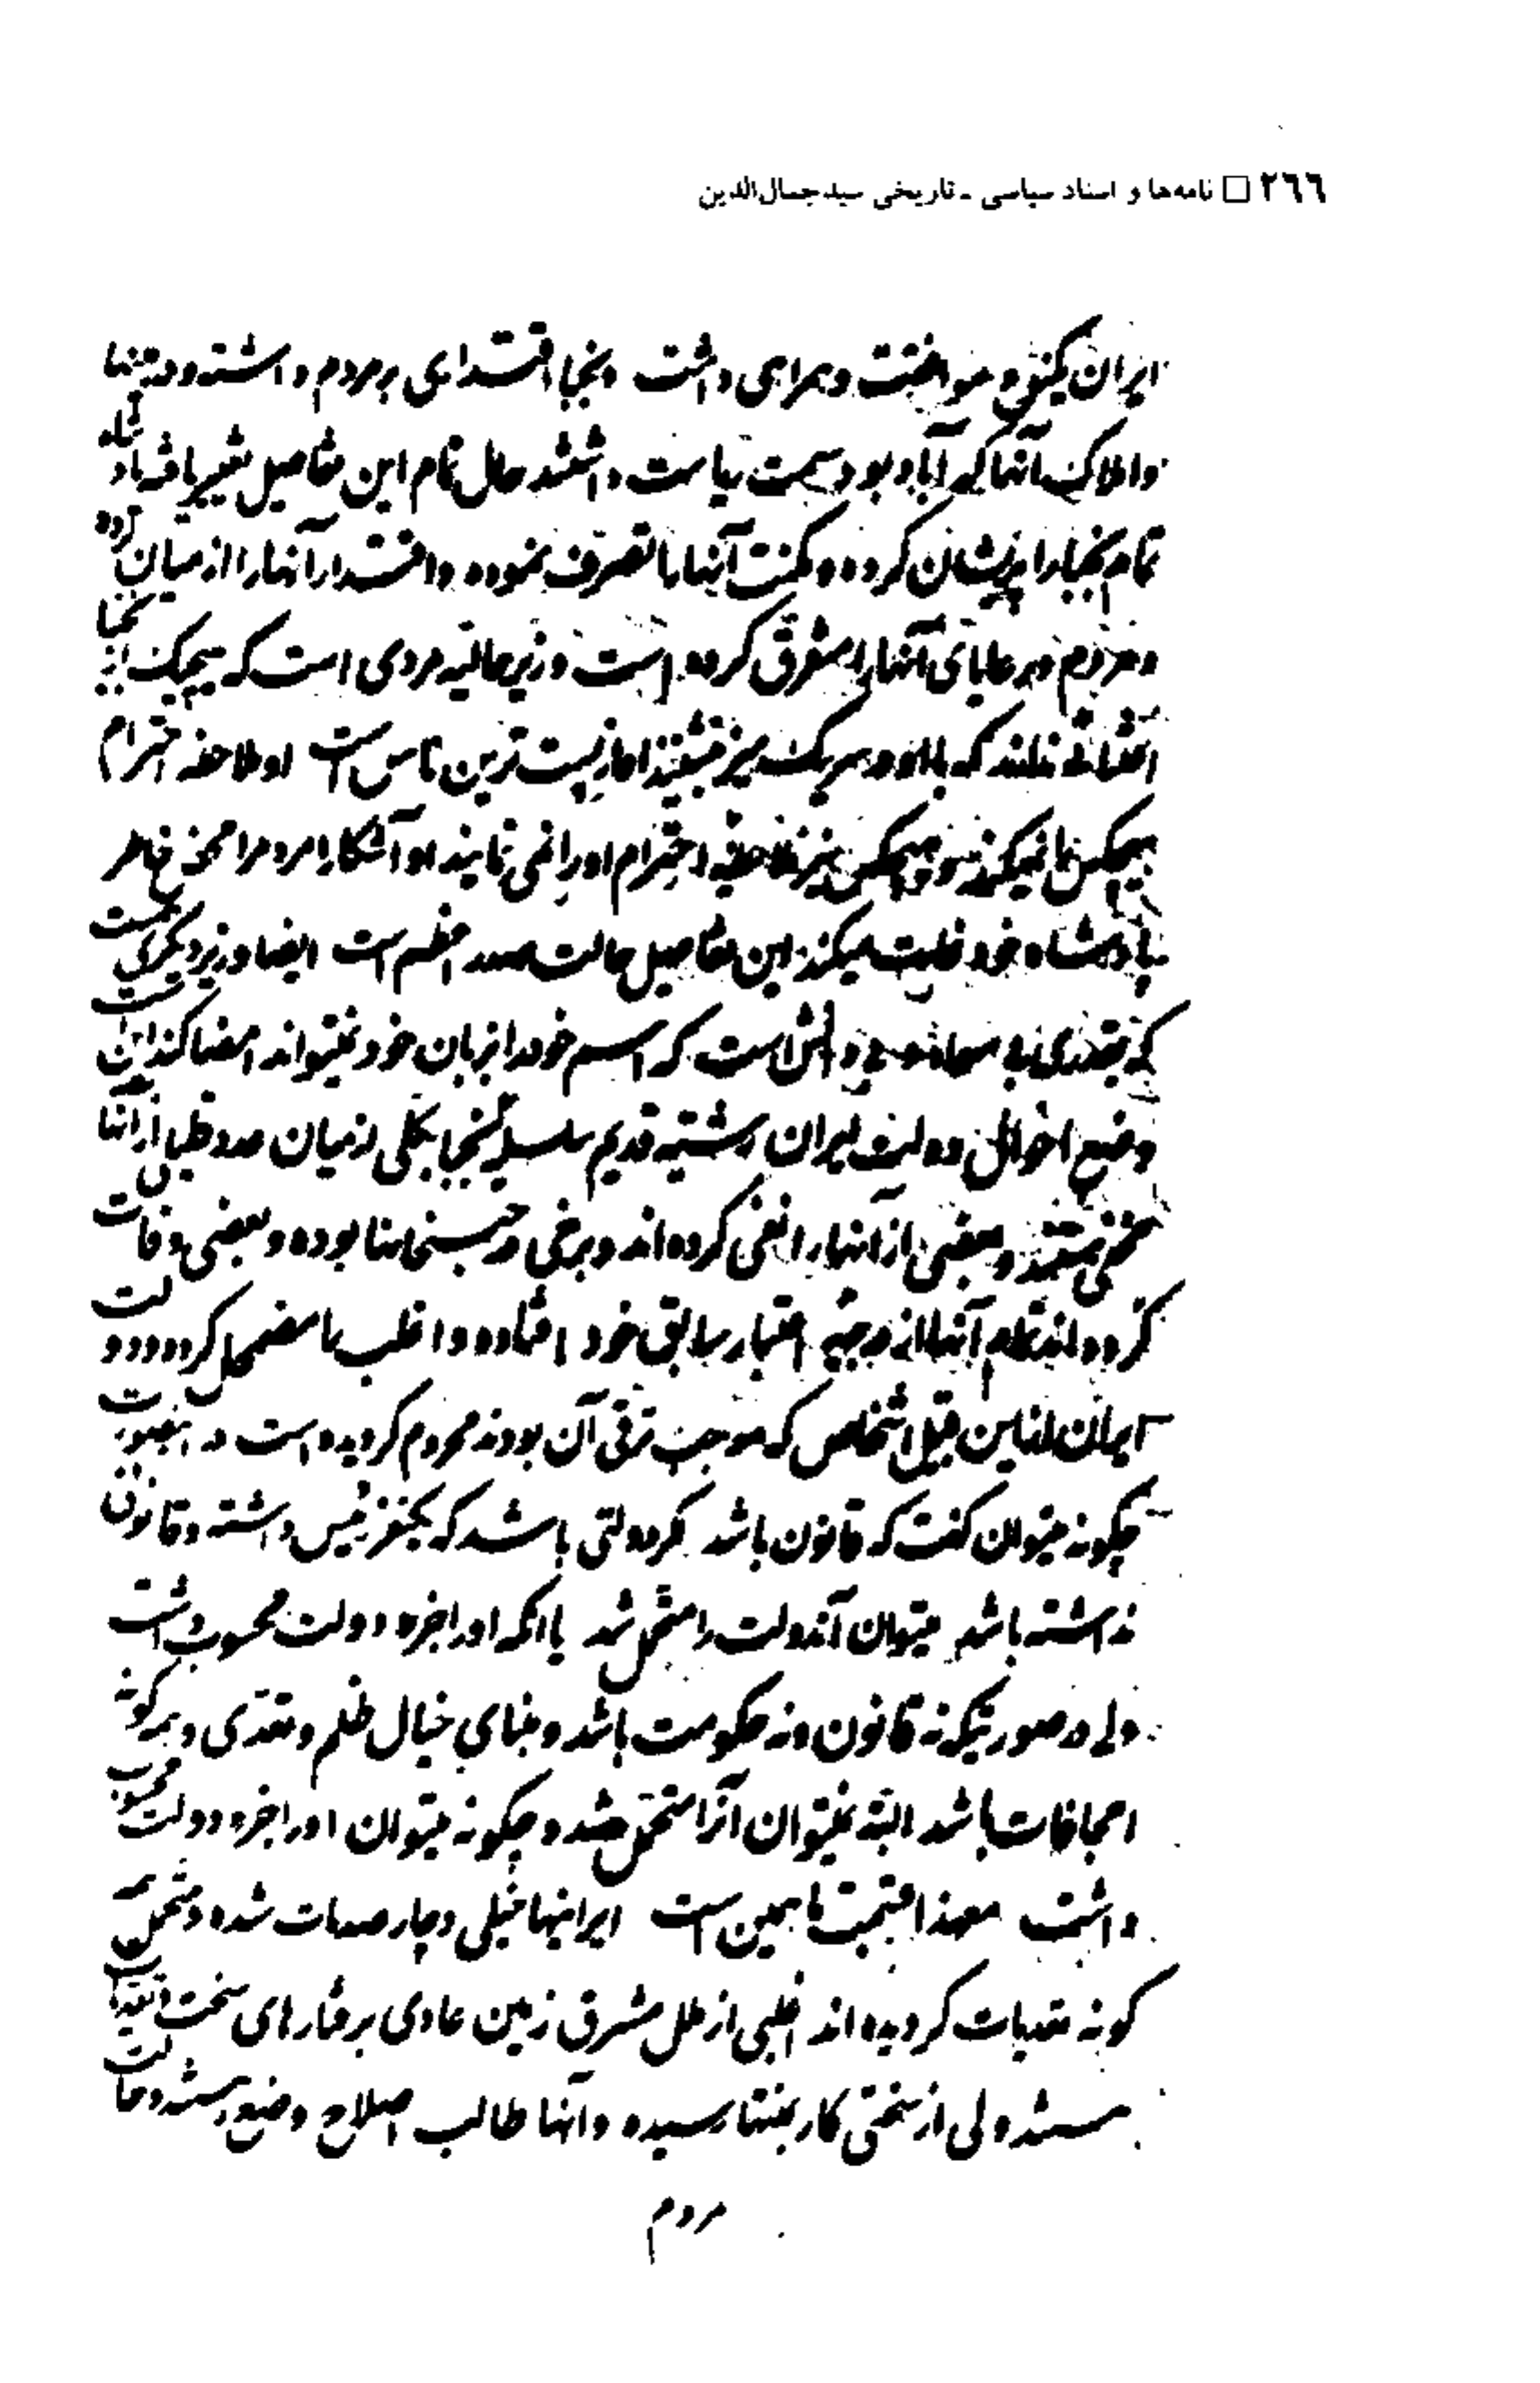 ٢٦٦ □ نامه‌ها و اسناد سیاسی ـ تاریخی سید جمال‌الدین
ایران یکنوع مواخذت و همراهی داشت و نجبا اقتداری بر مردم داشته و دهات
و املاک آنها آباد بود سمت ریاست داشتند حال تمام این تفاصیل تغییر یافته پادشاه
تمام نجبا را پریشان کرده و مکنت آنها را تصرف نموده و اقتدار آنها را از میان برده
و مردم و رعایای آنها را متفرق کرده است وزیر حالیه مردی است که هیچیک از نجبا
اعتنائی ندارند که با او و هر یک نیز از پست ترین ناس است او ملاحظه احترام
هیچکس را نمیکند و هیچکس نیز ملاحظه احترام او را نمی نماید او آشکارا مردم را محض خاطر
پادشاه خود غارت میکند این تفاصیل حالت صدر اعظم است ایضا وزیر دیگری هست
که اسم خود را از زبان خود نمیتواند امضا کند این است
وضع احوال دولت ایران رشته قدیم سلسله نجبا بکلی از میان رفته بعضی از آنها
مخفی هستند و بعضی از آنها را نفی کرده اند و برخی در حبسخانها بوده و بعضی وفات
کرده اند تمام آنها از درجه اعتبار سابق خود افتاده و اغلب را مضمحل کرده و دولت
ایران از این قبیل اشخاص که موجب ترقی آن بودند محروم گردیده است در اینصورت
چگونه میتوان گفت که قانون باشد اگر دولتی باشد که یکنفر رئیس داشته و قانون
نداشته باشد میتوان آندولت را متحمل شد یا آنکه او را جزو دولت محسوب داشت
ولی در صورتیکه نه قانون و نه حکومت باشد و بنای خیال ظلم و تعدی و هر گونه
اجحافات باشد البته نمیتوان آنرا متحمل شد و چگونه میتوان او را جزو دولت محسوب
داشت معهذا حقیقت ما همین است ایرانیها خیلی دچار صدمات شده و متحمل همه
گونه تعدیات گردیده اند اغلبی از ملل مشرق زمین عادی برفتارهای سخت و تعدیات
هستند ولی از سختی کار بمنتها رسیده و آنها طالب اصلاح وضع هستند و حالت
مردم